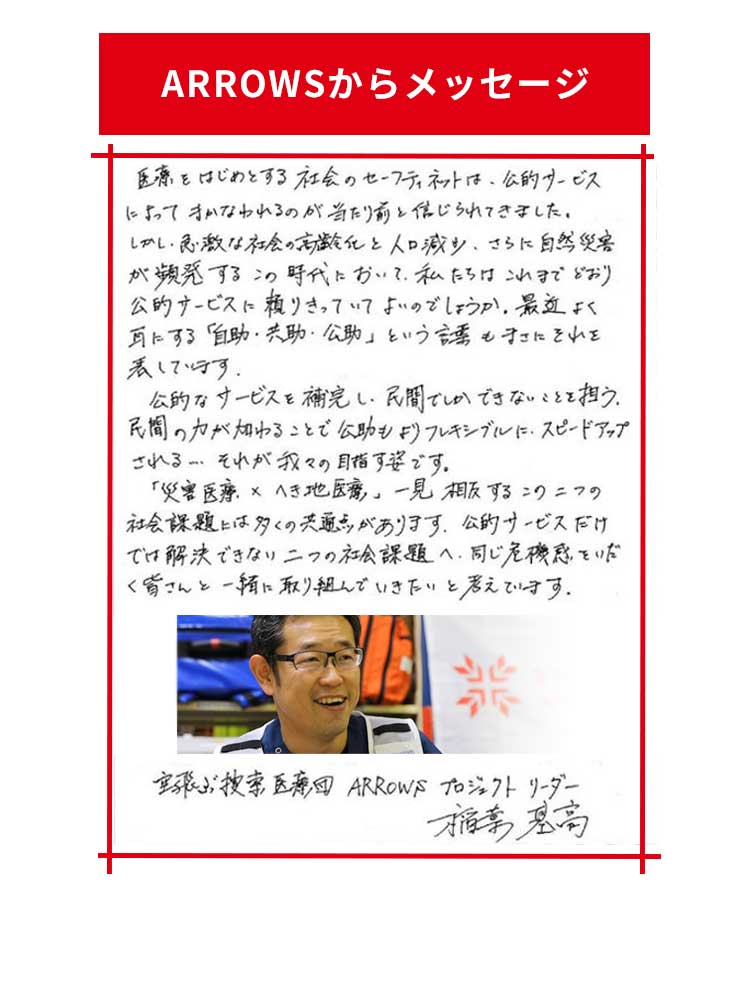 ARROWSからメッセージ
医療をはじめとする社会のセーフティネットは、公的サービス
によってまかなわれるのが当たり前と信じられてきました。
しかし、急激な社会の高齢化と人口減少、さらに自然災害
が頻発するこの時代において、私たちはこれまでどおり
公的サービスに頼りきっていてよいのでしょうか。最近よく
耳にする「自助・共助・公助」という言葉もまさにそれを
表しています。
公的なサービスを補完し、民間でしかできないことを担う。
民間の力が加わることで公助もよりフレキシブルに、スピードアップ
される… それが我々の目指す姿です。
「災害医療×へき地医療」一見相反するこの二つの
社会課題には多くの共通点があります。公的サービスだけ
では解決できない二つの社会課題へ、同じ危機感をいだ
く皆さんと一緒に取り組んでいきたいと考えています。
空飛ぶ捜索医療団 ARROWS プロジェクトリーダー
稲葉 基高